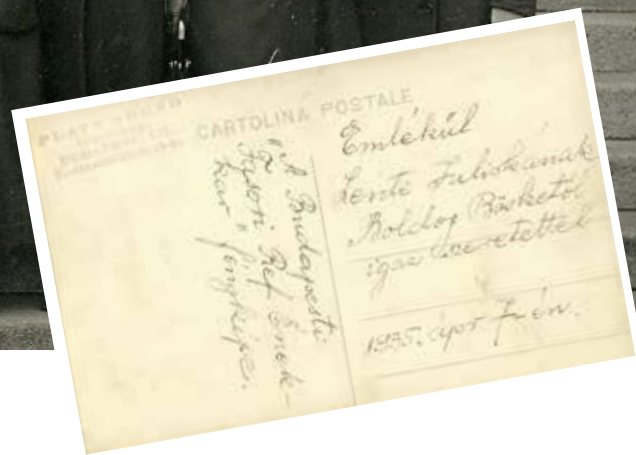 CARTOLINA POSTALE
"A Budapesti
Ref Ének-
kar" fényképe.
Emlékül
Lente Juliskának
Boldog Böskétől
igaz szeretettel
1935. ápr 7-én.